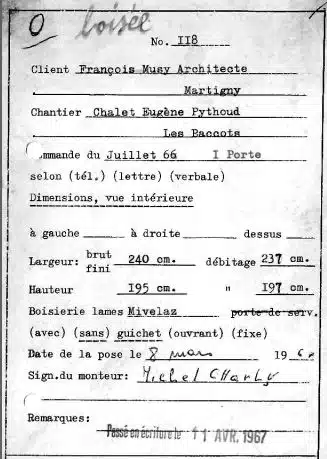 O boisée
No. 118
Client François Musy Architecte
Martigny
Chantier Chalet Eugène Pythoud
Les Baccots
mmande du Juillet 66 I Porte
selon (tél.) (lettre) (verbale)
Dimensions, vue intérieure
à gauche à droite dessus
Largeur: brut fini 240 cm. débitage 237 cm.
Hauteur 195 cm. " 197 cm.
Boisierie lames Mivelaz porte de serv.
(avec) (sans) guichet (ouvrant) (fixe)
Date de la pose le 8 mars 196
Sign.du monteur: Michel Charly
Remarques:
Passé en écriture le 11 AVR. 1967